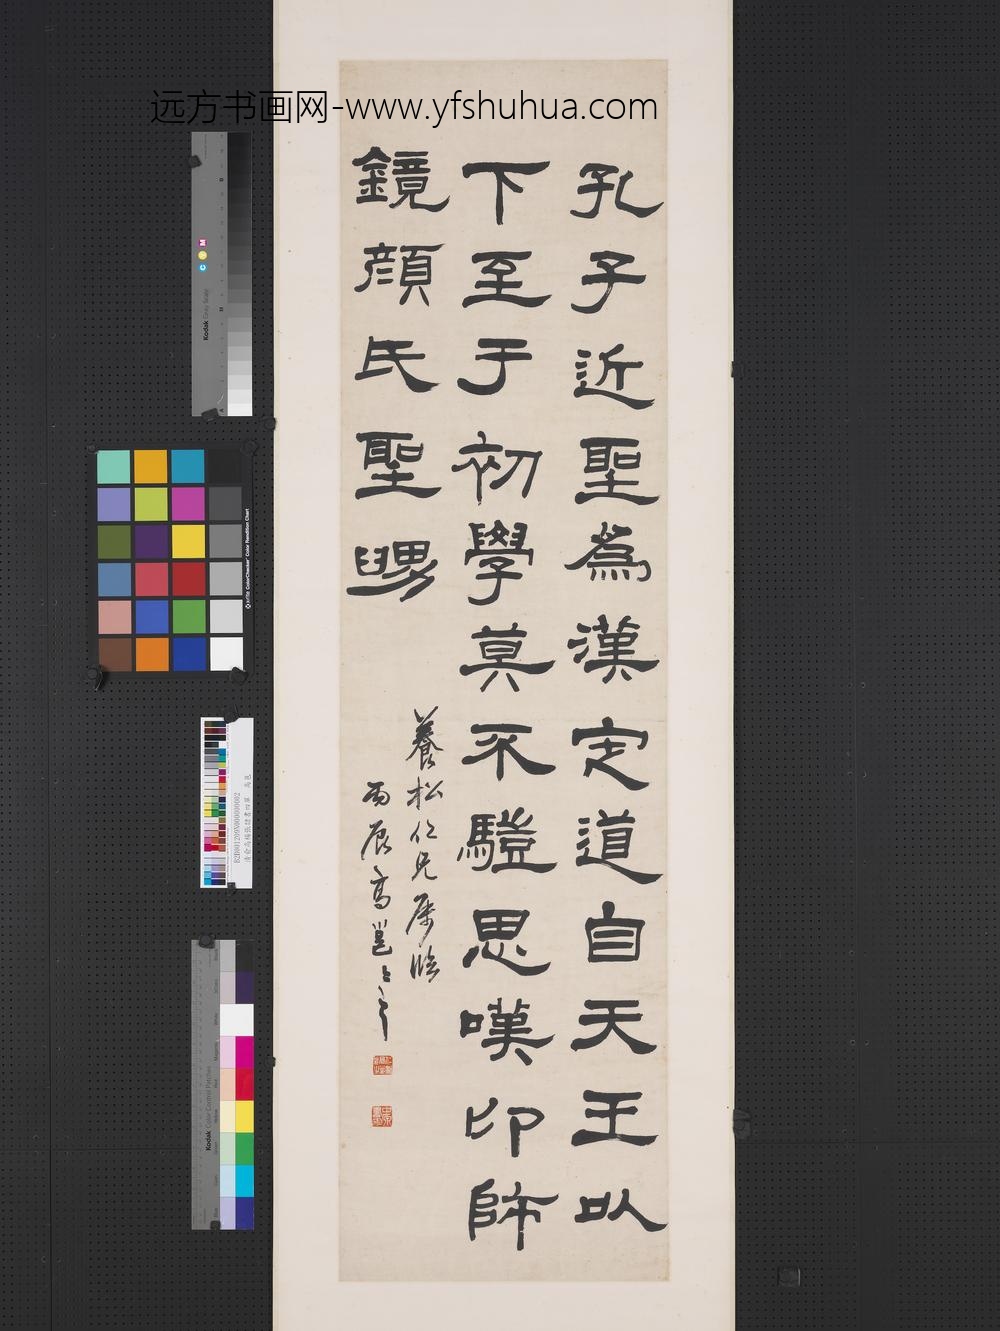 远方书画网-www.yfshuhua.com
孔子近聖為漢定道自天王以
下至于初學莫不驥思嘆卬師
鏡顏氏聖舅
養松仁兄屬臨
丙辰高邕
Kodak Gray Scale
C Y M
ColorChecker Color Rendition Chart
Kodak Color Control Patches